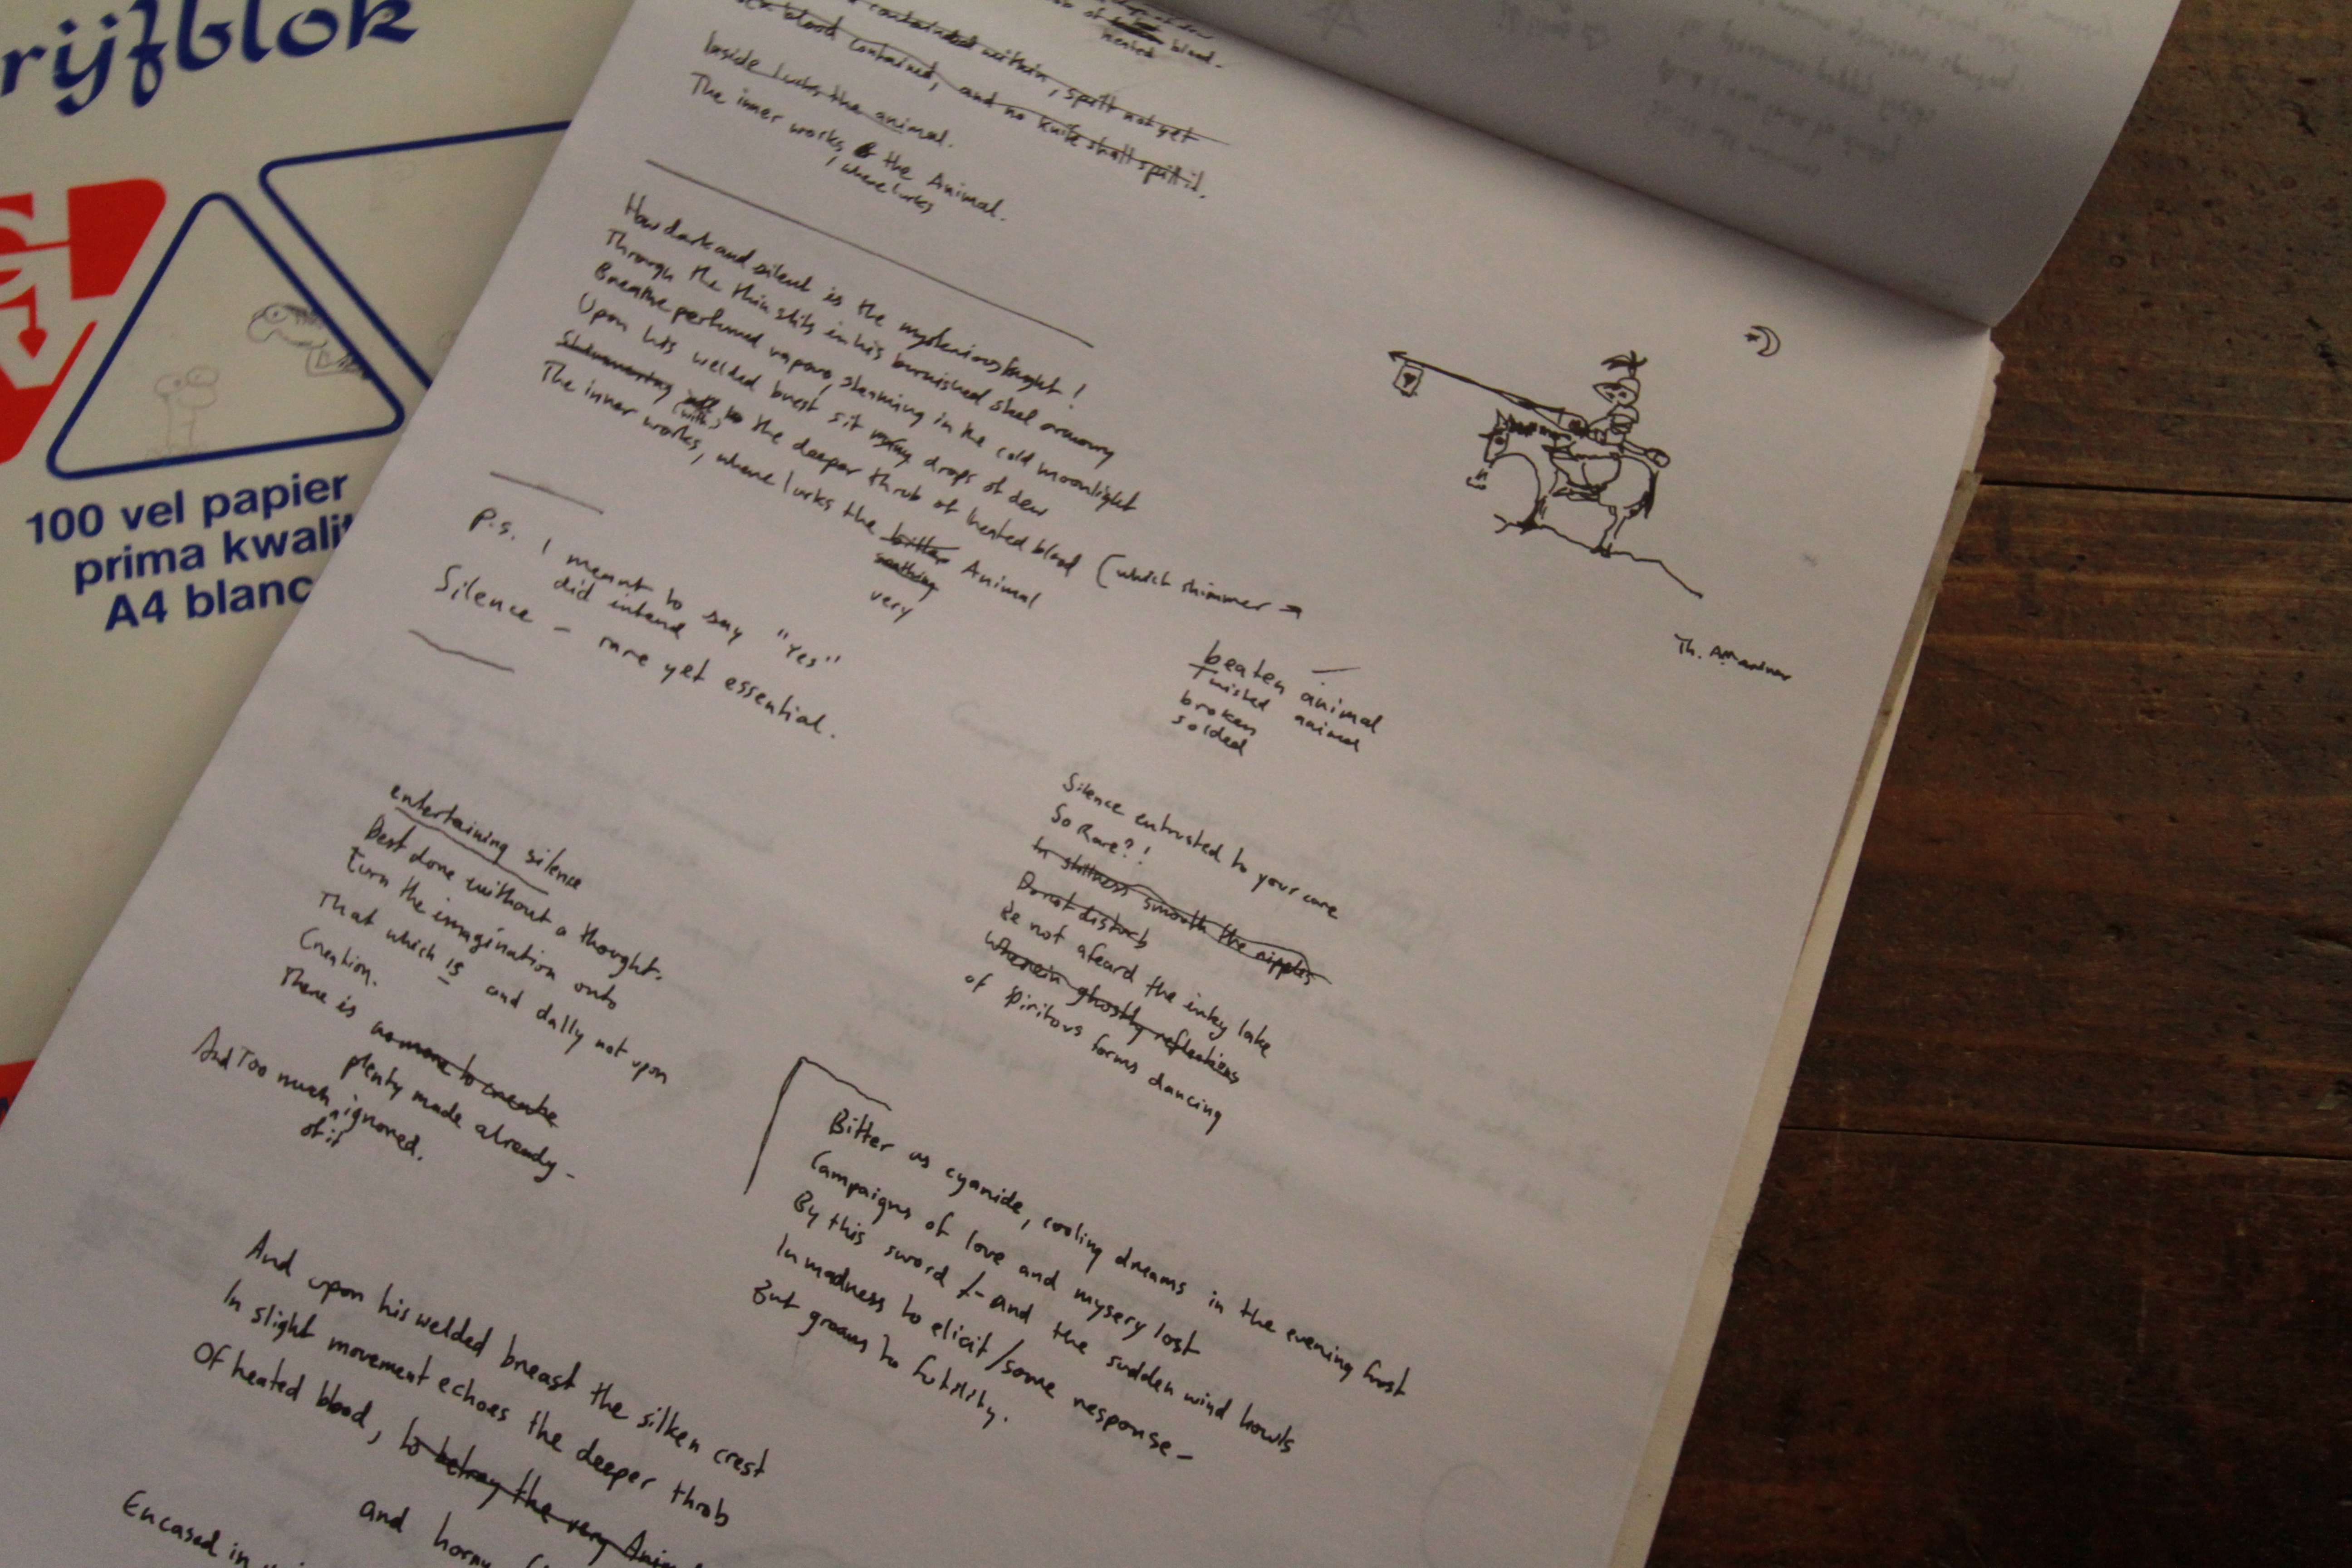 rijfblok
100 vel papier
prima kwalit
A4 blanc
contained within, spilt not yet
blood contained, and no knife shall spill it.
heated blood.
Inside lurks the animal.
The inner works, the Animal.
, where lurks
How dark and silent is the mysterious knight!
Through the thin slits in his burnished steel armoury
Breathe perfumed vapours, steaming in the cold moonlight
Upon his welded brest sit drops of dew
Shimmering to the deeper throb of heated blood (which shimmer →
(with)
The inner works, where lurks the bitter Animal
seething
very
P.S. I meant to say "Yes"
did intend
Silence – rare yet essential.
Th.
beaten animal
animal
broken
solded
entertaining silence
Best done without a thought.
Turn the imagination onto
That which is and dally not upon
Creation.
There is no more to create
plenty made already –
And Too much ignored.
of it
Silence entrusted to your care
So Rare?!
In stillness smooth the ripples
Do not disturb
Be not afeard the inky lake
Wherein ghostly reflections
of spiritous forms dancing
Bitter as cyanide, cooling dreams in the evening frost
Campaigns of love and mysery lost
By this sword /- and the sudden wind howls
In madness to elicit / some response –
But groans to futility.
And upon his welded breast the silken crest
In slight movement echoes the deeper throb
Of heated blood, to betray the very Anim
and horny
Encased in